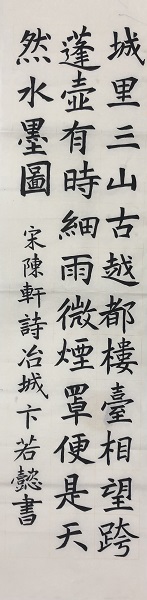 城里三山古越都樓臺相望跨
蓬壺有時細雨微煙罩便是天
然水墨圖
宋陳軒詩冶城卞若懿書